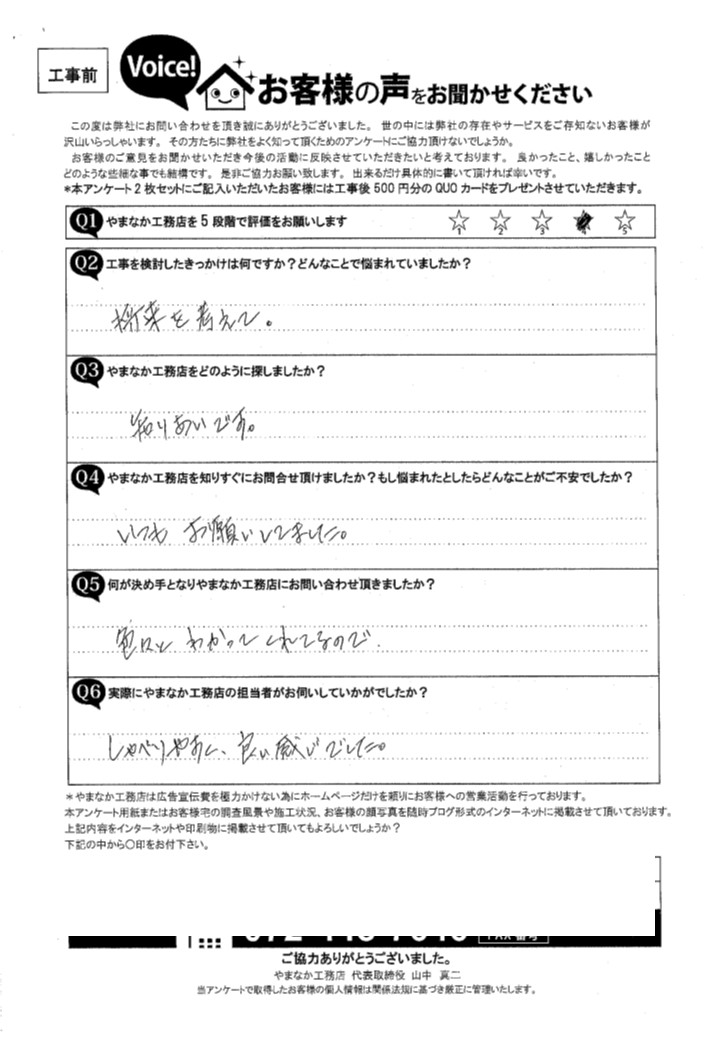 工事前
Voice!
お客様の声をお聞かせください
この度は弊社にお問い合わせを頂き誠にありがとうございました。 世の中には弊社の存在やサービスをご存知ないお客様が
沢山いらっしゃいます。 その方たちに弊社をよく知って頂くためのアンケートにご協力頂けないでしょうか。
お客様のご意見をお聞かせいただき今後の活動に反映させていただきたいと考えております。 良かったこと、嬉しかったこと
どのような些細な事でも結構です。 是非ご協力お願い致します。 出来るだけ具体的に書いて頂ければ幸いです。
*本アンケート2枚セットにご記入いただいたお客様には工事後500円分のQUOカードをプレゼントさせていただきます。
Q1 やまなか工務店を5段階で評価をお願いします
1 2 3 4 5
Q2 工事を検討したきっかけは何ですか？どんなことで悩まれていましたか？
将来を考えて。
Q3 やまなか工務店をどのように探しましたか？
知りあいです。
Q4 やまなか工務店を知りすぐにお問合せ頂けましたか？もし悩まれたとしたらどんなことがご不安でしたか？
いつも お願いしてました。
Q5 何が決め手となりやまなか工務店にお問い合わせ頂きましたか？
色々と わかってくれてるので.
Q6 実際にやまなか工務店の担当者がお伺いしていかがでしたか？
しゃべりやすく、良い感じでした。
＊やまなか工務店は広告宣伝費を極力かけない為にホームページだけを頼りにお客様への営業活動を行っております。
本アンケート用紙またはお客様宅の調査風景や施工状況、お客様の顔写真を随時ブログ形式のインターネットに掲載させて頂いております。
上記内容をインターネットや印刷物に掲載させて頂いてもよろしいでしょうか？
下記の中から○印をお付下さい。
ご協力ありがとうございました。
やまなか工務店 代表取締役 山中 真二
当アンケートで取得したお客様の個人情報は関係法規に基づき厳正に管理いたします。